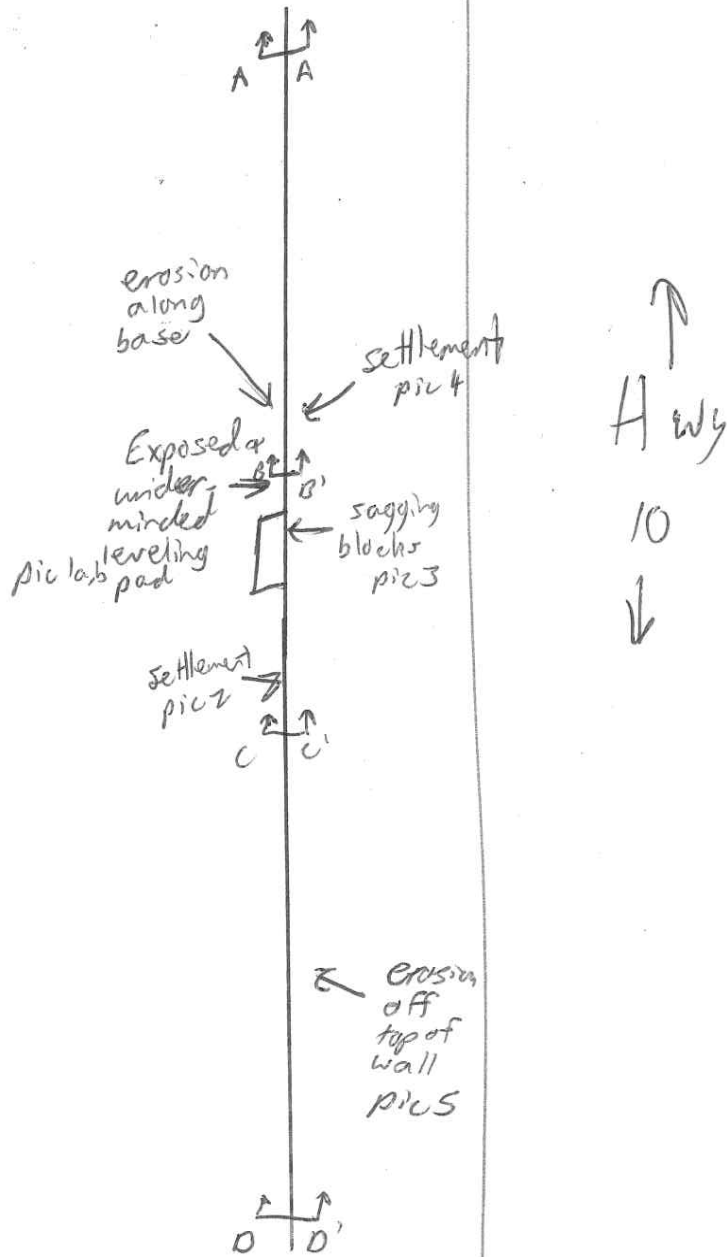 A A
erosion
along
base
settlement
pic 4
Hwy
10
Exposed &
under-
minded
leveling
pad
pic 1a,b
B B'
sagging
blocks
pic 3
settlement
pic 2
C C'
erosion
off
top of
wall
pic 5
D D'